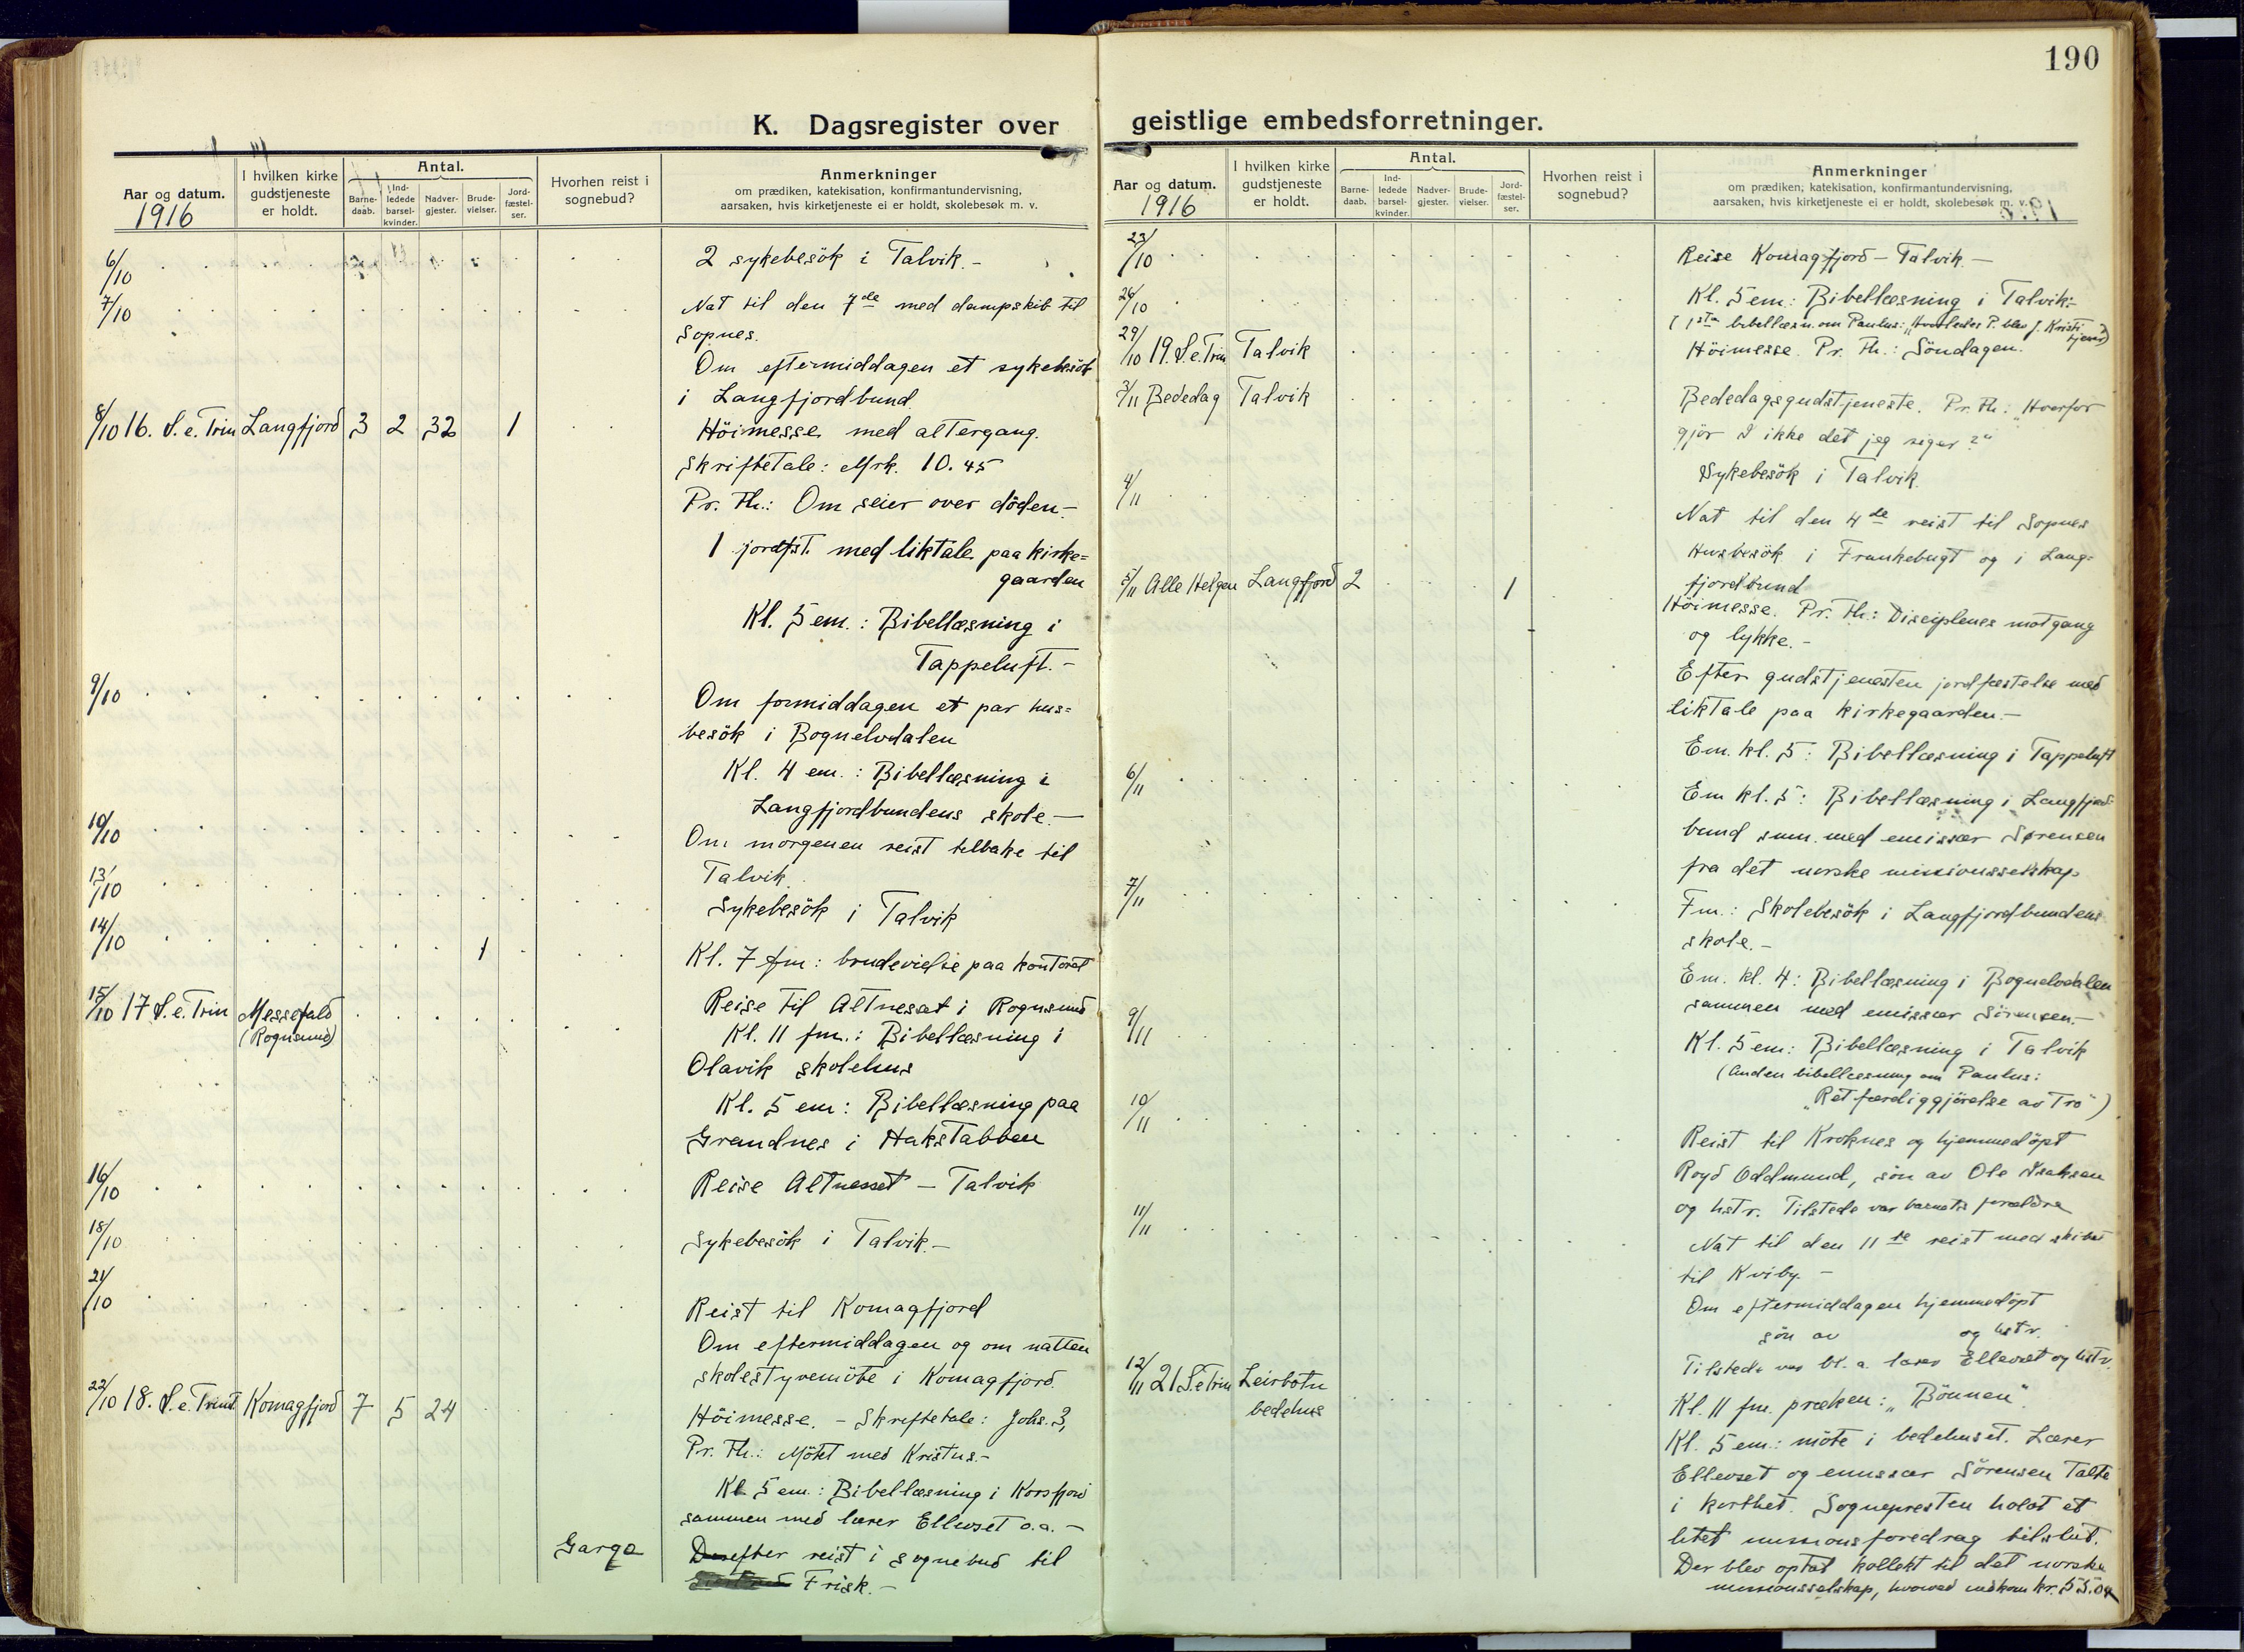 190
K. Dagsregister over geistlige embedsforretninger.
Aar og datum.
1916
I hvilken kirke
gudstjeneste
er holdt.
Antal.
Barne-
daab.
Ind-
ledede
barsel-
kvinder.
Nadver-
gjester.
Brude-
vielser.
Jord-
fæstel-
ser.
Hvorhen reist i
sognebud?
Anmerkninger
om prædiken, katekisation, konfirmantundervisning,
aarsaken, hvis kirketjeneste ei er holdt, skolebesøk m. v.
6/10 2 sykebesök i Talvik.-
7/10 Nat til den 7de med dampskib til
Sopnes.
Om eftermiddagen et sykebesök
i Langfjordbund.
8/10 16. S. e. Trin Langfjord 3 2 32 1 Höimesse med altergang.
Skriftetale: Mrk. 10. 45
Pr. Th.: Om seier over döden.-
1 jordfst. med liktale paa kirke=
gaarden
Kl. 5 em.: Bibellæsning i
Tappeluft.-
9/10 Om formiddagen et par hus=
besök i Bognelvdalen
Kl. 4 em.: Bibellæsning i
Langfjordbundens skole.-
10/10 Om morgenen reist tilbake til
Talvik.
13/10 Sykebesök i Talvik
14/10 1 Kl. 7 fm: brudevielse paa kontoret
15/10 17 S. e. Trin Messefald
(Rognsund)
Reise til Altnesset i Rognsund
Kl. 11 fm.: Bibellæsning i
Olavik skolehus
Kl. 5 em: Bibellæsning paa
Grandnes i Hakstabben
16/10 Reise Altnesset - Talvik
18/10 Sykebesök i Talvik.-
21/10 Reist til Komagfjord
Om eftermiddagen og om natten
skolestyremöte i Komagfjord.
22/10 18. S. e. Trint Komagfjord 7 5 24 Höimesse. - Skriftetale: Johs. 3,
Pr. Th.: Mötet med Kristus.-
Kl 5 em.: Bibellæsning i Korsfjord
sammen med lærer Ellevset o.a.-
Garga Derefter reist i sognebud til
Frisk.-
Aar og datum.
1916
I hvilken kirke
gudstjeneste
er holdt.
Antal.
Barne-
daab.
Ind-
ledede
barsel-
kvinder.
Nadver-
gjester.
Brude-
vielser.
Jord-
fæstel-
ser.
Hvorhen reist i
sognebud?
Anmerkninger
om prædiken, katekisation, konfirmantundervisning,
aarsaken, hvis kirketjeneste ei er holdt, skolebesøk m. v.
23/10 Reise Komagfjord - Talvik.-
26/10 Kl. 5 em: Bibellæsning i Talvik.-
(1ste bibellæsn. om Paulus: "Hvorledes P. blev J. Kristi
tjener)
29/10 19. S. e. Trin Talvik Höimesse. Pr. Th.: Söndagen.
3/11 Bededag Talvik Bededagsgudstjeneste. Pr. Th.: "Hvorfor
gjör I ikke det jeg siger?"
Sykebesök i Talvik.
4/11 Nat til den 4de reist til Sopnes
Husbesök i Frankebugt og i Lang=
fjordbund
5/11 Alle Helgen Langfjord 2 1 Höimesse. Pr. Th.: Disciplenes motgang
og lykke.-
Efter gudstjenesten jordfæstelse med
liktale paa kirkegaarden.-
Em. kl. 5: Bibellæsning i Tappeluft
6/11 Em kl. 5: Bibellæsning i Langfjord-
bund smn. med emissær Sørensen
fra det norske missionsselskap
7/11 Fm.: Skolebesök i Langfjordbundens
skole.-
Em. kl. 4: Bibellæsning i Bognelvdalen
sammen med emissær Sörensen.-
9/11 Kl. 5 em: Bibellæsning i Talvik
(Anden bibellæsning om Paulus:
"Retfærdiggjörelse av Tro")
10/11 Reist til Kroknes og hjemmedöpt
Royd Oddmund, sön av Ole Isaksen
og hstr. Tilstede var barnets forældre
11/11 Nat til den 11te reist med skibet
til Kviby.-
Om eftermiddagen hjemmedöpt
sön av og hstr.
Tilstede var bl. a. lærer Ellevset og hstr.
12/11 21 S. e Trin Leirbotn
bedehus
Kl. 11 fm. præken: "Bönnen".
Kl. 5 em.: möte i bedehuset. Lærer
Ellevset og emissær Sörensen talte
i korthet. Sognepresten holdt et
litet missionsforedrag tilslut.
Der blev optat kollekt til det norske
missionsselskap, hvorved indkom kr. 55.04